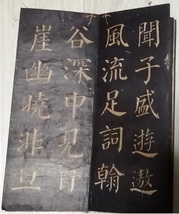 聞子盛遊遨
風流足詞翰
谷深中見日
崖幽曉非旦